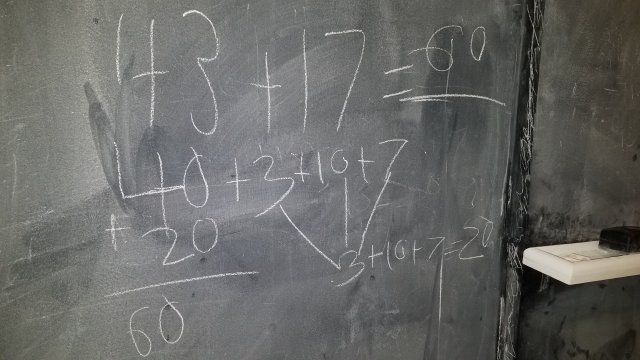 43+17=60
40+3+10+7
+20
3+10+7=20
60